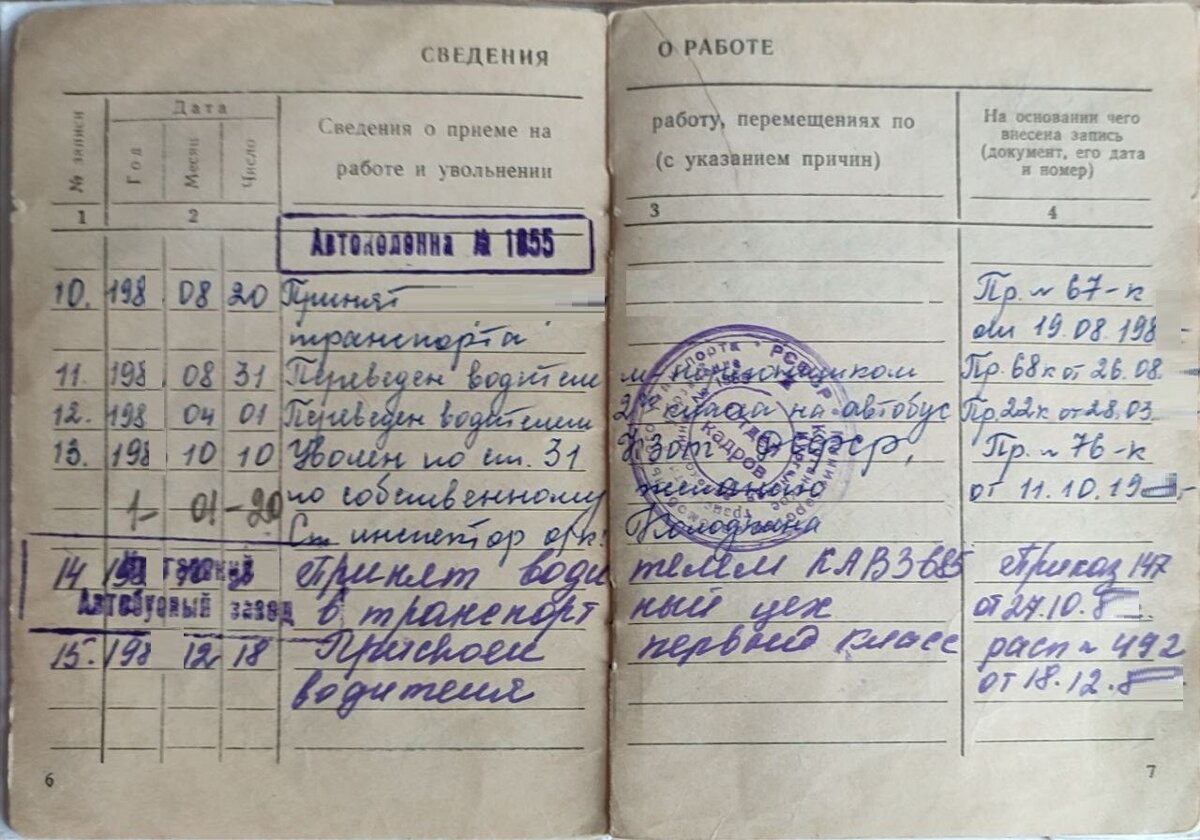 СВЕДЕНИЯ О РАБОТЕ
№ записи
Дата
Год
Месяц
Число
Сведения о приеме на работу, перемещениях по
работе и увольнении (с указанием причин)
На основании чего
внесена запись
(документ, его дата
и номер)
1 2 3 4
Автоколонна № 1855
10. 198 08 20 Принят Пр. № 67-к
транспорта от 19.08.198
11. 198 08 31 Переведен водителем Пр. 68к от 26.08.
12. 198 04 01 Переведен водителем 2го класса на автобус Пр 22к от 28.03.
13. 198 10 10 Уволен по ст. 31 КЗОТ РСФСР, Пр. № 76-к
по собственному желанию от 11.10.19
1- 01-20
Ст. инспектор о/к:
Отдел
кадров
Автобусный завод
14 198 Принят водителем КАВЗ 685 Приказ 147
в транспортный цех от 27.10.8
15. 198 12 18 Присвоен первый класс расп № 492
водителя от 18.12.8
6 7